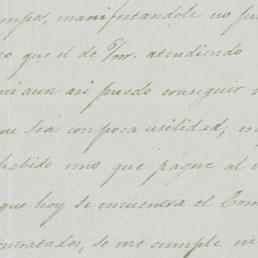 manifestandole no pu
que el de Ym. atendiendo
ni aun asi puedo conseguir
sea con poca utilidad, en
habido uno que pague al
que hoy se encuentra el Com
contratados, se me cumple